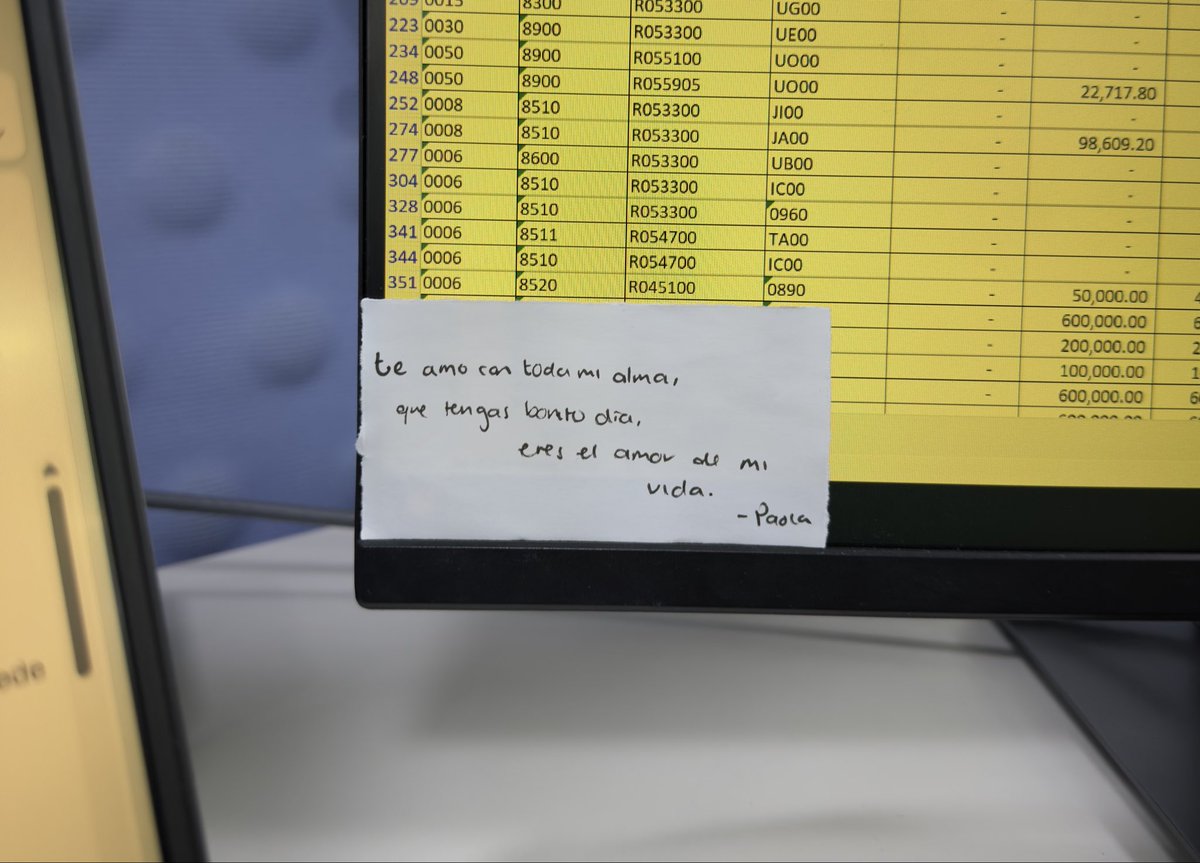 209 0015 8300 R053300 UG00 - -
223 0030 8900 R053300 UE00 - -
234 0050 8900 R055100 UO00 - -
248 0050 8900 R055905 UO00 - 22,717.80
252 0008 8510 R053300 JI00 - -
274 0008 8510 R053300 JA00 - 98,609.20
277 0006 8600 R053300 UB00 - -
304 0006 8510 R053300 IC00 - -
328 0006 8510 R053300 0960 - -
341 0006 8511 R054700 TA00 - -
344 0006 8510 R054700 IC00 - -
351 0006 8520 R045100 0890 - 50,000.00
- 600,000.00
- 200,000.00
- 100,000.00
- 600,000.00
te amo con toda mi alma,
que tengas bonito dia,
eres el amor de mi
vida.
- Paola